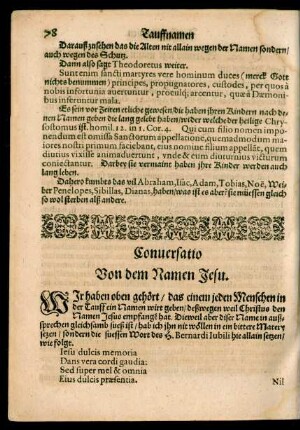 78 Tauffnamen
Darauß zusehen das die Alten nit allain wegen der Namen sondern/
auch wegen des Schutz.
Dann also sagt Theodoretus weiter.
Sunt enim sancti martyres vere hominum duces (merck Gott
niches benummen) principes, propugnatores, custodes, per quos à
nobis infortunia auertuntur, procul que arcentur, quæ à Dæmoni-
bus inferuntur mala.
Es sein vor Zeiten etliche gewesen/die haben ihren Kindern nach de-
nen Namen geben die lang gelebt haben/wider welche der heilige Chry-
sostomus ist. homil. 12. in 1. Cor. 4. Qui cum filio nomen impo-
nendum est omissa Sanctorum appellatione, quemadmodum veteres
nostri primum faciebant, eius nomine filium appellât, quem
diutius vixisse animaduertunt, vnde & eum diuturnius victurum
coniectantur. Darbey sie vermaint haben ihre Kinder werden auch
lang leben.
Dahero kumbts das vil Abraham, Isác, Adam, Tobias, Noë, Wei-
ber Penelopes, Sibillas, Dianas, haben/was ist es aber/sie müessen gleich
so wol sterben als andere.
Conuersatio
Von dem Namen Jesu.
WIr haben oben gehört/das einem jeden Menschen in
der Tauff ein Namen wirt geben/deßwegen weil Christus den
Namen Jesus empfangē hat. Dieweil aber diser Name in auß-
sprechen gleichsamb sueß ist/hab ich jhn nit wöllen in ein bittere Matery
setzen/sondern die suessen Wort des H. Bernardi Iubili hie allain setzen/
wie folgt.
Iesu dulcis memoria
Dans vera cordi gaudia:
Sed super mel & omnia
Eius dulcis præsentia.
Nil